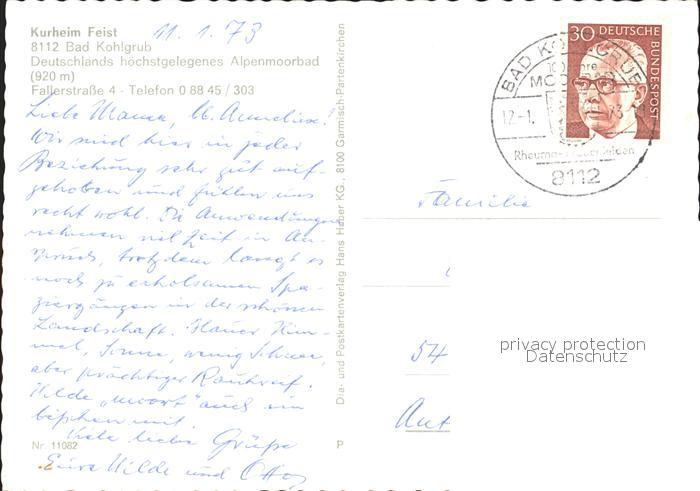 Kurheim Feist
11.1.73
8112 Bad Kohlgrub
Deutschlands höchstgelegenes Alpenmoorbad
(920 m)
Fallerstraße 4 - Telefon 0 88 45 / 303
Liebe Mama, lb. Anneliese!
Wir sind hier in jeder
Beziehung sehr gut auf-
gehoben und fühlen uns
recht wohl. Die Anwendungen
nehmen viel Zeit in An-
spruch, trotzdem langt es
noch zu erholsamen Spa-
ziergängen in der schönen
Landschaft. Blauer Him-
mel, Sonne, wenig Schnee,
aber prächtiger Rauhreif.
Hilde "moort" auch ein
bißchen mit.
Viele liebe Grüße
Eure Hilde und Otto
Nr. 11082
P
Dia- und Postkartenverlag Hans Huber KG., 8100 Garmisch-Partenkirchen
30 DEUTSCHE
BUNDESPOST
BAD KOHLGRUB
100 Jahre
MOORBAD
12.-1. 73
Rheuma-
8112
Familie
54
privacy protection
Datenschutz